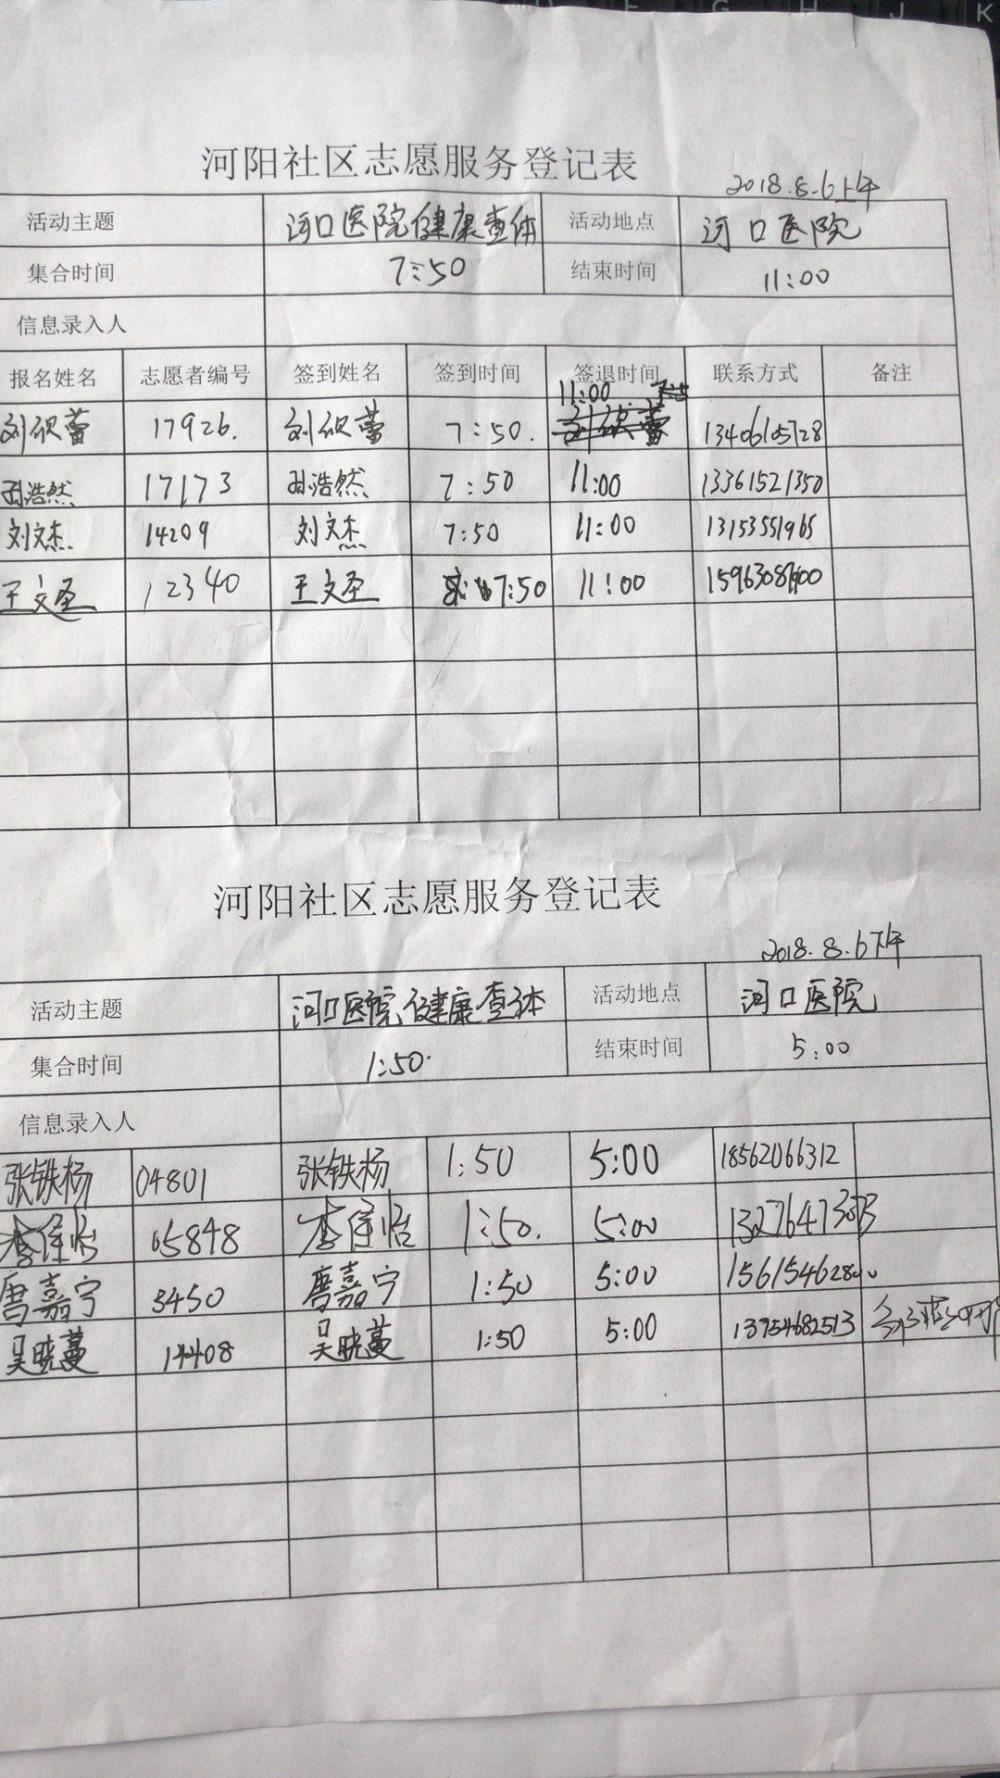 河阳社区志愿服务登记表
2018.8.6上午
活动主题 河口医院健康查体 活动地点 河口医院
集合时间 7:50 结束时间 11:00
信息录入人
报名姓名 志愿者编号 签到姓名 签到时间 签退时间 联系方式 备注
刘砚蕾 17926. 刘砚蕾 7:50. 11:00 13406105728
孙浩然 17173 孙浩然 7:50 11:00 13361521350
刘文杰 14209 刘文杰 7:50 11:00 13153551965
王文圣 12340 王文圣 7:50 11:00
河阳社区志愿服务登记表
2018.8.6下午
活动主题 河口医院健康查体 活动地点 河口医院
集合时间 1:50. 结束时间 5:00
信息录入人
张铁杨 04801 张铁杨 1:50 5:00 18562066312
李佳怡 05848 李佳怡 1:50. 5:00
唐嘉宁 3450 唐嘉宁 1:50 5:00
吴晓蔓 14408 吴晓蔓 1:50 5:00 13954682513